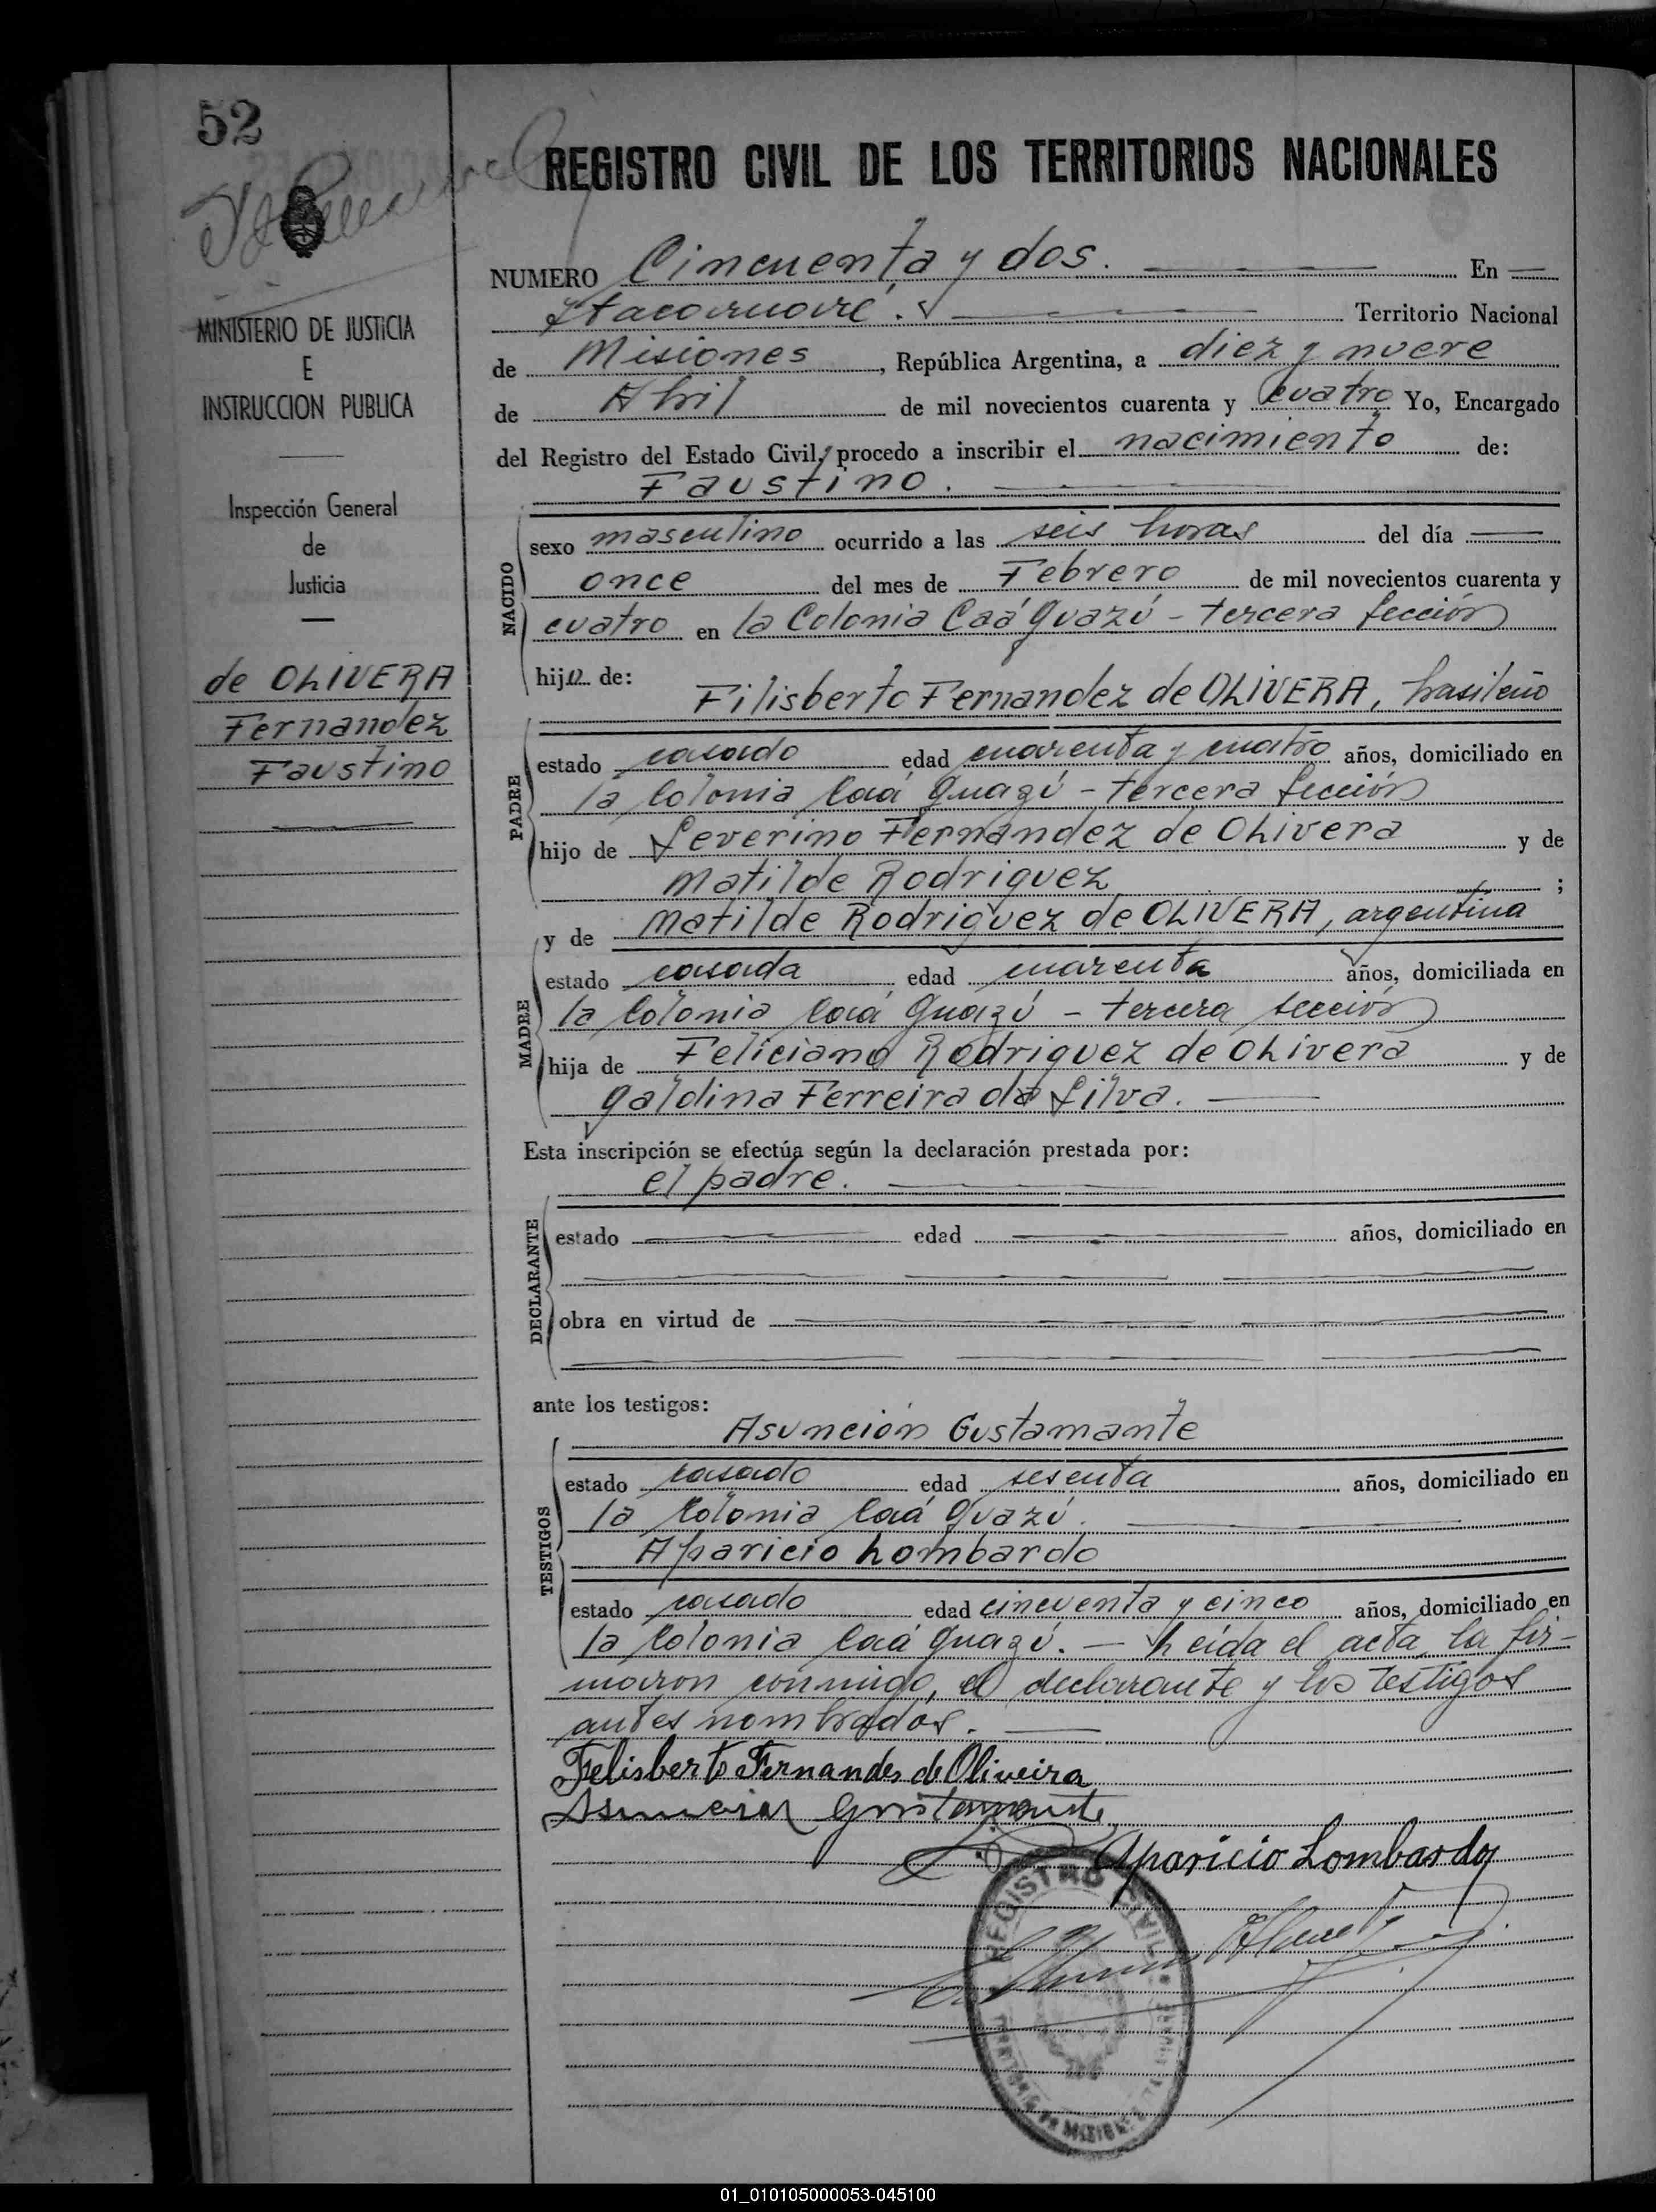 52
REGISTRO CIVIL DE LOS TERRITORIOS NACIONALES
MINISTERIO DE JUSTICIA
E
INSTRUCCION PUBLICA
Inspección General
de
Justicia
de OLIVERA
Fernandez
Faustino
NUMERO Cincuenta y dos. En
Itacaruaré. Territorio Nacional
de Misiones, República Argentina, a diez y nueve
de Abril de mil novecientos cuarenta y cuatro Yo, Encargado
del Registro del Estado Civil, procedo a inscribir el nacimiento de:
Faustino.
NACIDO
sexo masculino ocurrido a las seis horas del día
once del mes de Febrero de mil novecientos cuarenta y
cuatro en la Colonia Caá Guazú - tercera sección
hijo de:
Filisberto Fernandez de OLIVERA, brasileño
PADRE
estado casado edad cuarenta y cuatro años, domiciliado en
la Colonia Caá Guazú - tercera sección
hijo de Severino Fernandez de Olivera y de
Matilde Rodriguez ;
y de Matilde Rodriguez de OLIVERA, argentina
MADRE
estado casada edad cuarenta años, domiciliada en
la Colonia Caá Guazú - tercera sección
hija de Feliciano Rodriguez de Olivera y de
Galdina Ferreira da Silva.
Esta inscripción se efectúa según la declaración prestada por:
el padre.
DECLARANTE
estado edad años, domiciliado en
obra en virtud de
ante los testigos:
Asunción Gustamante
TESTIGOS
estado casado edad sesenta años, domiciliado en
la Colonia Caá Guazú.
Aparicio Lombardo
estado casado edad cincuenta y cinco años, domiciliado en
la Colonia Caá Guazú. — Leída el acta, la fir-
maron conmigo, el declarante y los testigos
antes nombrados.
Felisberto Fernandes de Oliveira
Asuncion Gustamante
Aparicio Lombardo
REGISTRO CIVIL
01_010105000053-045100